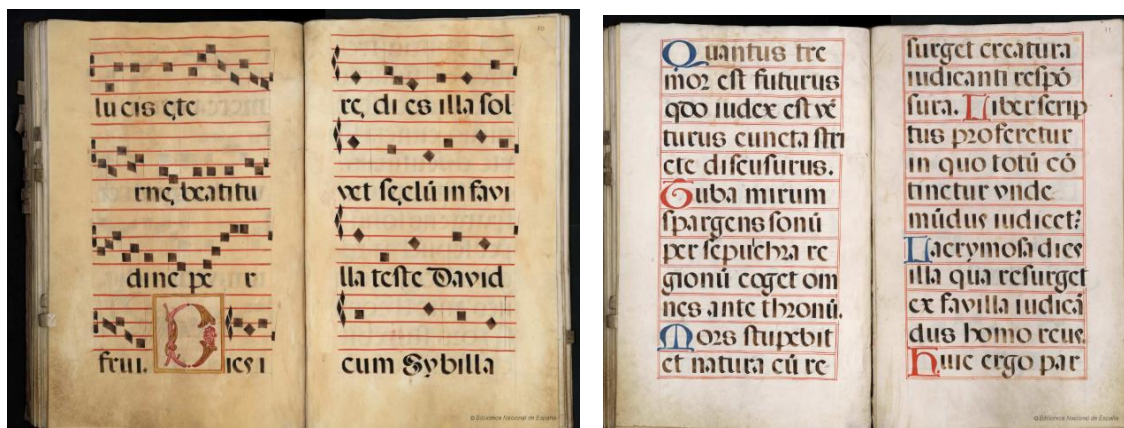 lu cis ęte
rnę beatitu
dine pe r
frui. Dies i
10
re, di es illa sol
vet sęclū in favi
lla teste David
cum Sybilla
© Biblioteca Nacional de España
Quantus tre
mor est futurus
qđo iudex est vē
turus cuncta stri
cte discusurus.
Tuba mirum
spargens sonū
per sepulchra re
gionū coget om
nes ante thronū.
Mors stupebit
et natura cū re
11
surget creatura
iudicanti respō
sura. Liber scrip
tus proferetur
in quo totū cō
tinetur vnde
mūdus iudicet?
Lacrymosa dies
illa qua resurget
ex favilla iudicā
dus homo reus.
Huic ergo par
© Biblioteca Nacional de España